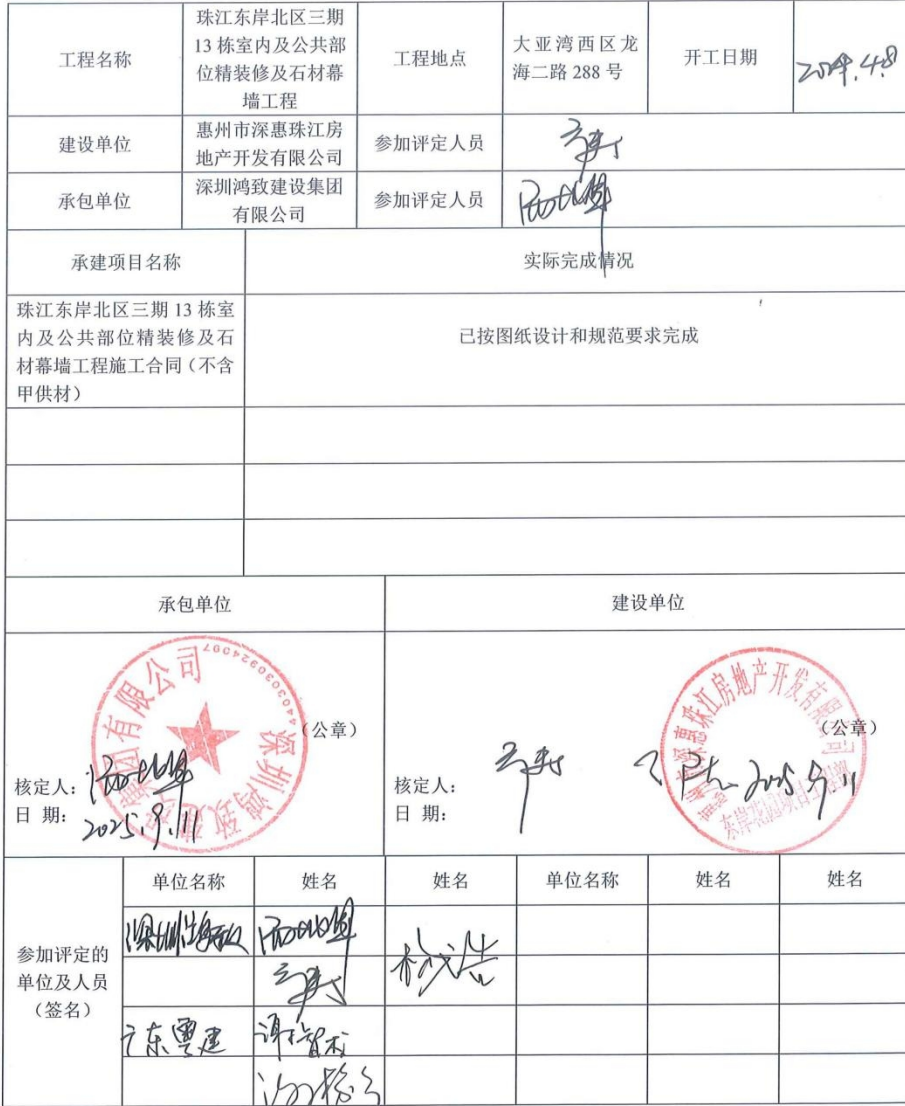 工程名称
珠江东岸北区三期
13 栋室内及公共部
位精装修及石材幕
墙工程
工程地点
大亚湾西区龙
海二路 288 号
开工日期
建设单位
惠州市深惠珠江房
地产开发有限公司
参加评定人员
承包单位
深圳鸿致建设集团
有限公司
参加评定人员
承建项目名称
实际完成情况
珠江东岸北区三期 13 栋室
内及公共部位精装修及石
材幕墙工程施工合同（不含
甲供材）
已按图纸设计和规范要求完成
承包单位
建设单位
（公章）
核定人：
日 期：
2025.9.11
深圳鸿致建设集团有限公司
（公章）
核定人：
日 期：
2025 9.11
惠州市深惠珠江房地产开发有限公司
参加评定的
单位及人员
（签名）
单位名称
姓名
姓名
单位名称
姓名
姓名
深圳鸿致
广东粤建